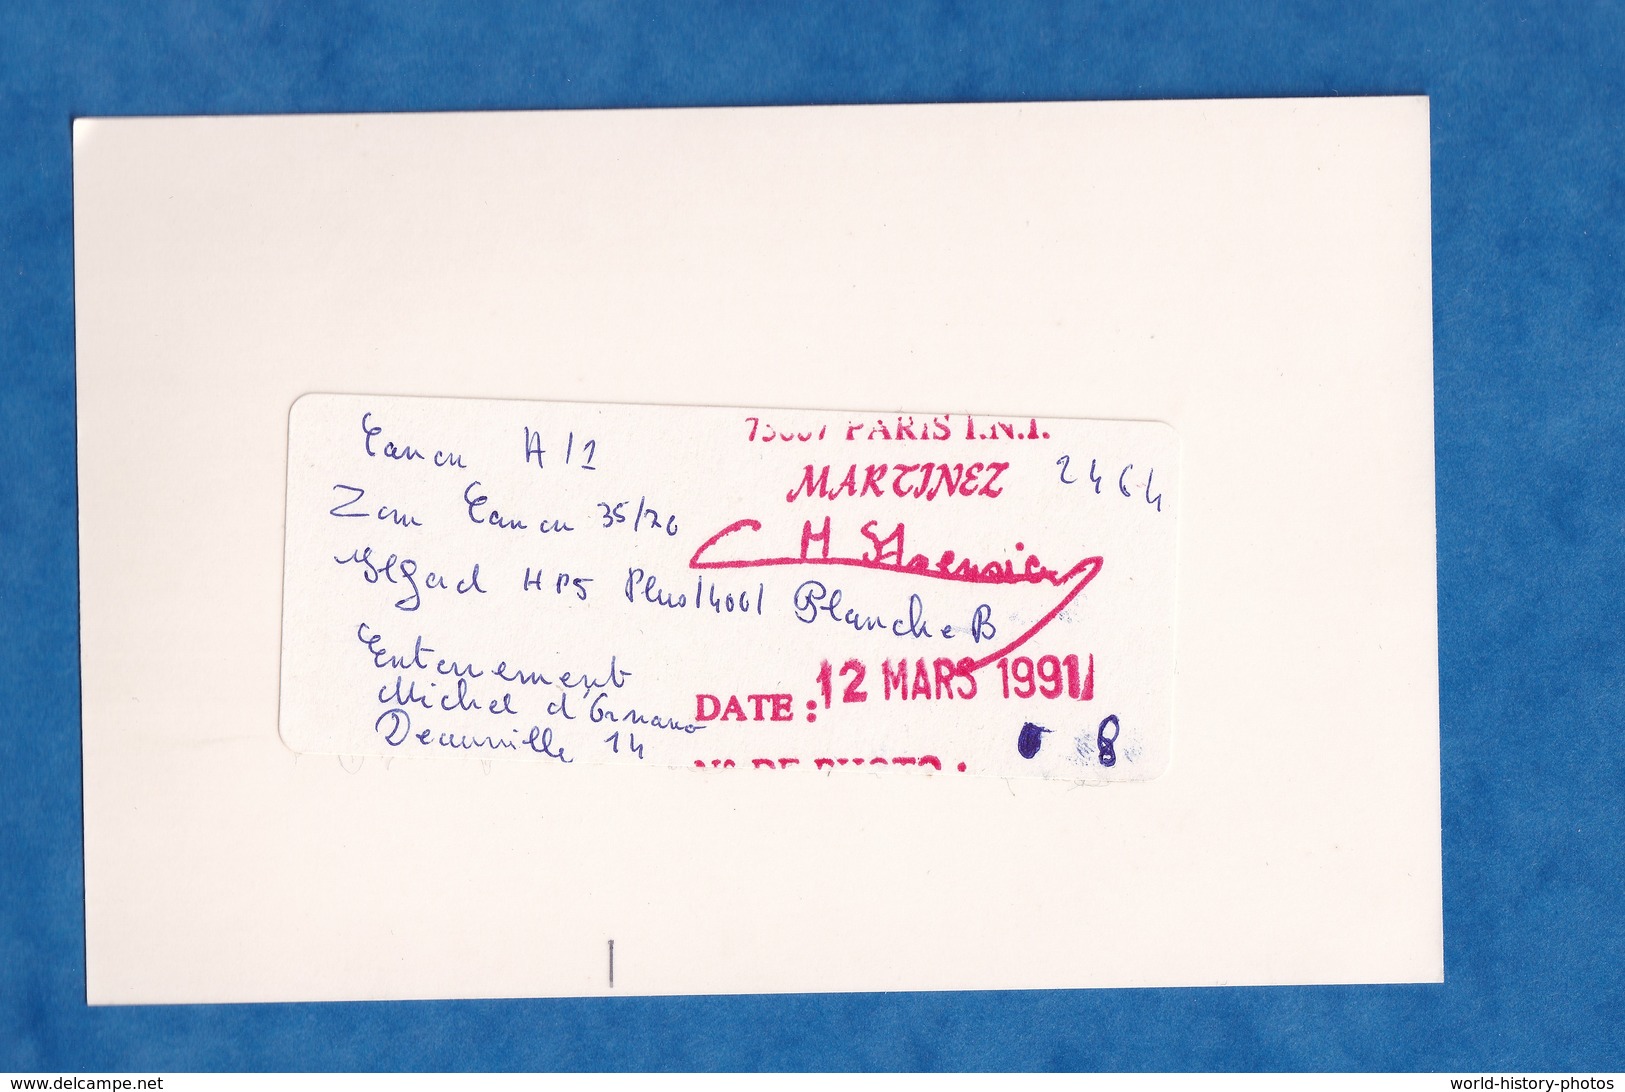 Canon A/1
Zom Canon 35/70
HP5 Plus/400/ Planche B
Enterrement
Michel d'Ornano
Deauville 14
PARIS I.N.I.
MARTINEZ
2464
DATE : 12 MARS 1991
8
N° DE PHOTO :
delcampe.net
world-history-photos